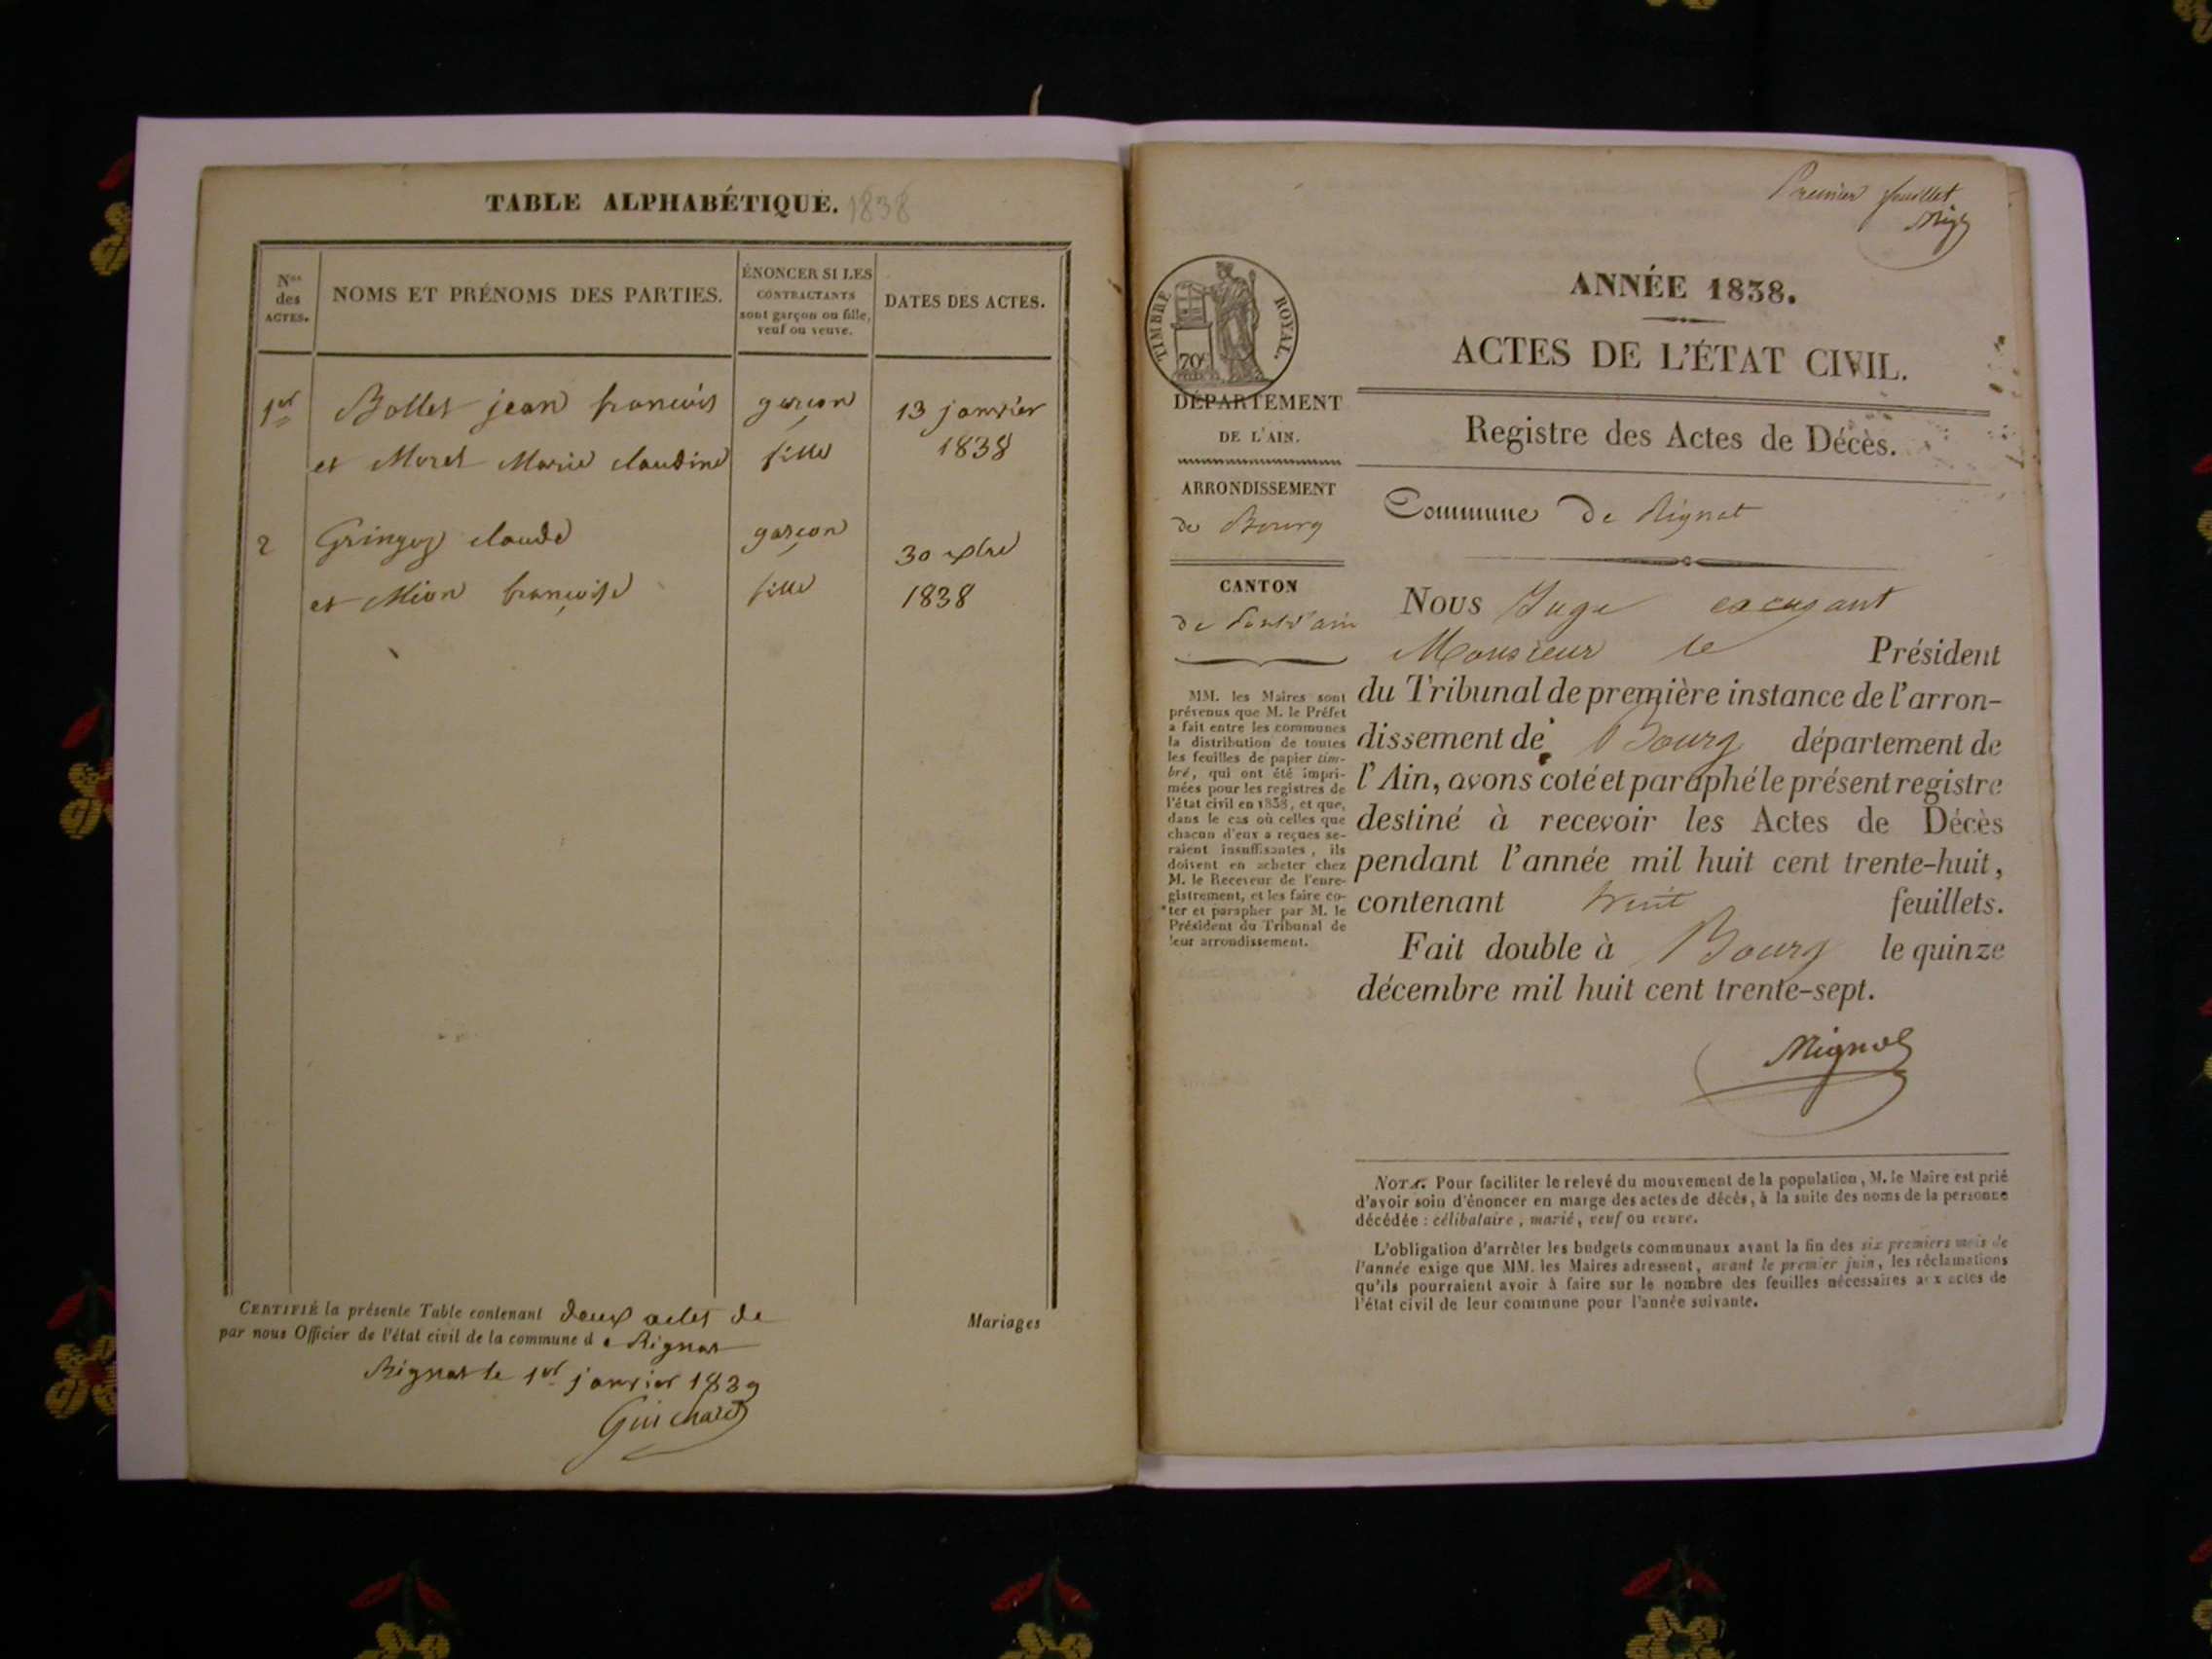 TABLE ALPHABÉTIQUE. 1838
Nos des ACTES.
NOMS ET PRÉNOMS DES PARTIES.
ÉNONCER SI LES
CONTRACTANTS
sont garçon ou fille,
veuf ou veuve.
DATES DES ACTES.
1er Bollet jean francois garçon 13 janvier
et Moret Marie claudine fille 1838
2 claude garçon 30 xbre
et Mion françoise fille 1838
CERTIFIÉ la présente Table contenant deux actes de Mariages
par nous Officier de l'état civil de la commune de Rignat
Rignat le 1er janvier 1839
Guichard
Premier feuillet
Mig
TIMBRE ROYAL.
70c
DÉPARTEMENT
DE L'AIN.
ARRONDISSEMENT
de Bourg
CANTON
de Pont d'ain
MM. les Maires sont
prévenus que M. le Préfet
a fait entre les communes
la distribution de toutes
les feuilles de papier tim-
bré, qui ont été impri-
mées pour les registres de
l'état civil en 1838, et que,
dans le cas où celles que
chacun d'eux a reçues se-
raient insuffisantes, ils
doivent en acheter chez
M. le Receveur de l'enre-
gistrement, et les faire co-
ter et parapher par M. le
Président du Tribunal de
leur arrondissement.
ANNÉE 1838.
ACTES DE L'ÉTAT CIVIL.
Registre des Actes de Décès.
Commune de Rignat
Nous Juge exerçant
Monsieur le Président
du Tribunal de première instance de l'arron-
dissement de Bourg département de
l'Ain, avons coté et paraphé le présent registre
destiné à recevoir les Actes de Décès
pendant l'année mil huit cent trente-huit,
contenant feuillets.
Fait double à Bourg le quinze
décembre mil huit cent trente-sept.
NOTA. Pour faciliter le relevé du mouvement de la population, M. le Maire est prié
d'avoir soin d'énoncer en marge des actes de décès, à la suite des noms de la personne
décédée : célibataire, marié, veuf ou veuve.
L'obligation d'arrêter les budgets communaux avant la fin des six premiers mois de
l'année exige que MM. les Maires adressent, avant le premier juin, les réclamations
qu'ils pourraient avoir à faire sur le nombre des feuilles nécessaires aux actes de
l'état civil de leur commune pour l'année suivante.